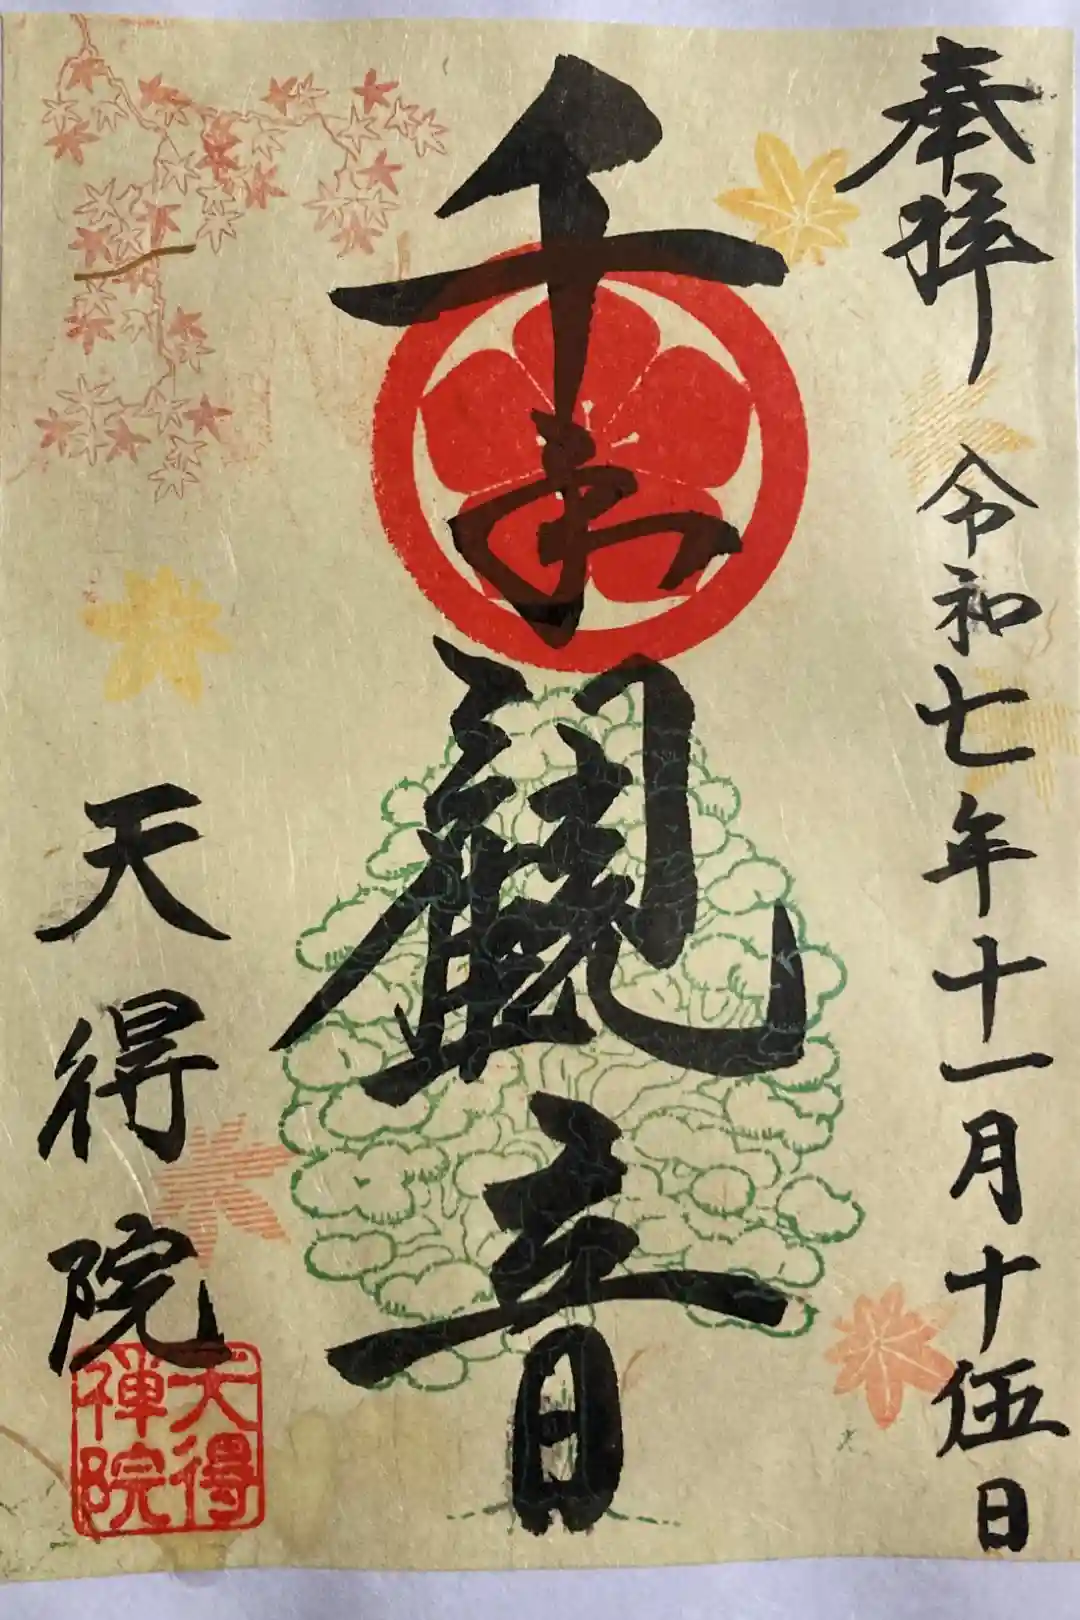 奉拝
令和七年十一月十伍日
千手觀音
天得院
天得
禅院